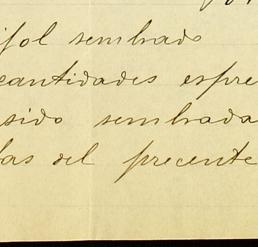 ifol sembrado
cantidades espre
sido sembrada
las del precente